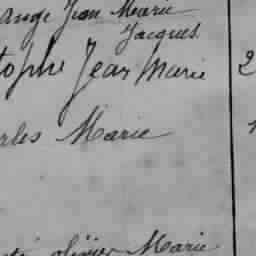 Ange Jean Marie
Jacques
tophe Jean Marie 2
arles Marie
olivier Marie